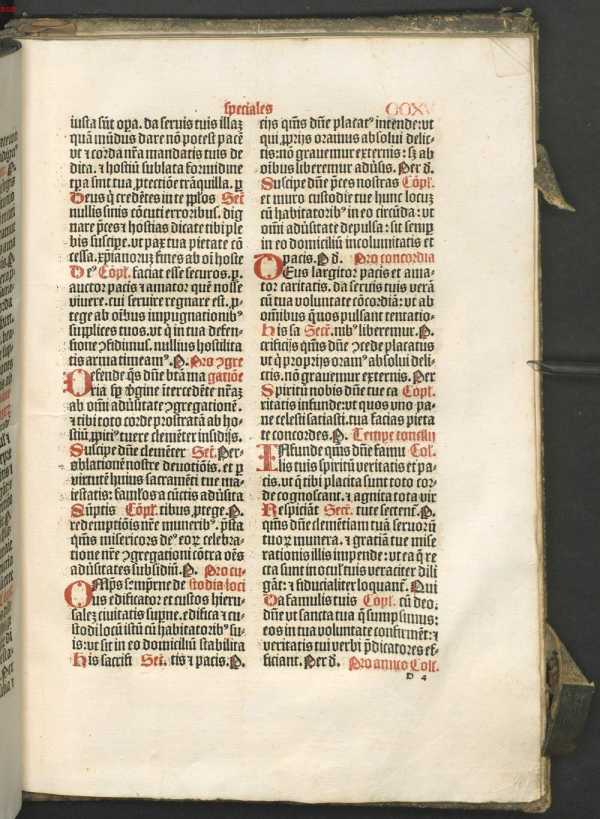 speciales
CCXV
iusta sūt opa. da seruis tuis illaȝ
quā mūdus dare nō potest pacē
vt ⁊ corda nr̄a mandatis tuis de
dita. ⁊ hostiū sublata formidine
tꝑa sint tua ꝓtectiōe trāquilla. ꝑ
Deus q̄ credētes in te pplos Secͥ
nullis sinis cōcuti erroribus. dig
nare p̄ces ⁊ hostias dicate tibi ple
bis suscipe. vt pax tua pietate cō
cessa. xp̄ianoruȝ fines ab oī hoste
De⁹ Cōpl. faciat esse securos. ꝑ.
auctor pacis ⁊ amator quē nosse
viuere. cui seruire regnare est. ꝓ-
tege ab oībus impugnationib⁹
supplices tuos. vt q̄ in tua defen-
sione ꝯfidimus. nullius hostilita
tis arma timeam⁹. P. Pro ꝯgre
Defende q̄s dn̄e bt̄a ma gatiōe
ria sp̄ ꝟgine ītercedēte n̄r̄aȝ
ab omī aduersitate ꝯgregationē.
⁊ tibi toto corde prostratā ab ho-
stiū ꝓpiti⁹ tuere clemēter insidijs.
Suscipe dn̄e clemēter Secͥ. Per
oblationē nostre deuotiōis. et ꝑ
virtutē huius sacramēti tue ma-
iestatis: famlos a cūctis aduersita
Sūptis Cōpl. tibus ꝓtege. P.
redemptiōis nr̄e munerib⁹. p̄sta
qm̄s misericors de⁹ eorꝝ celebra-
tione nr̄e ꝯgregationi cōtra oēs
aduersitates subsidiū. P. Pro cu-
Omp̄s sempit̄ne de stodia loci
us edificator et custos hieru-
saleȝ ciuitatis supn̄e. edifica ⁊ cu-
stodi locū istū cū habitatorib⁹ su-
is: vt sit in eo domiciliū stabilita
His sacrifi Secͥ. tis ⁊ pacis. P.
cijs qm̄s dn̄e placat⁹ intende: vt
qui ꝓprijs oramus absolui delic-
tis: nō grauemur externis: sȝ ab
oībus liberemur aduersis. Per d.
Suscipe dn̄e p̄ces nostras Cōpl.
et muro custodie tue hunc locuȝ
cū habitatorib⁹ in eo circūda: vt
omī aduersitate depulsa: sit semꝑ
in eo domiciliū incolumitatis et
pacis. P. d. Pro concordia
DEus largitor pacis et ama-
tor caritatis. da seruis tuis verā
cū tua voluntate cōcordiā: vt ab
omībus q̄ nos pulsant tentatio-
His sa Secr. nib⁹ liberemur. P.
crificijs qm̄s dn̄e ꝯcede placatus
vt q̄ proprijs oram⁹ absolui deli-
ctis. nō grauemur externis. Per
Spiritū nobis dn̄e tue ca Cōpl.
ritatis infunde: vt quos vno pa-
ne celesti satiasti. tua facias pieta
te concordes. P. Tempe consilij
INfunde qm̄s dn̄e famu Col.
lis tuis spiritū veritatis et pa-
cis. vt q̄ tibi placita sunt toto cor-
de cognoscant. ⁊ agnita tota vir
Respiciāt Secr. tute sectent̄. P.
qm̄s dn̄e clemētiam tuā seruorū
tuorꝝ munera. ⁊ gratiā tue mise
rationis illis impende: vt ea q̄ re
cta sunt in ocul'tuis veraciter dili
gāt: ⁊ fiducialiter loquant̄. Qui
Da famulis tuis Cōpl. cū deo.
dn̄e vt sancta tua q̄ sumpsimus:
eos in tua voluntate confirmēt: ⁊
veritatis tui verbi p̄dicatores ef-
ficiant. Per d. Pro amico Coll.
D 4